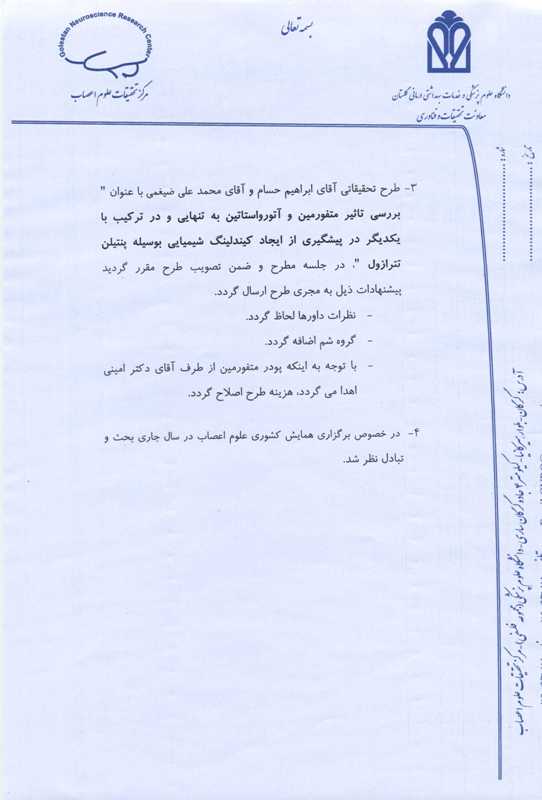 بسمه تعالی
Golestan Neuroscience Research Center
مرکز تحقیقات علوم اعصاب
دانشگاه علوم پزشکی و خدمات بهداشتی درمانی گلستان
معاونت تحقیقات و فناوری
تاریخ :
شماره :
۳- طرح تحقیقاتی آقای ابراهیم حسام و آقای محمد علی ضیغمی با عنوان "
بررسی تاثیر متفورمین و آتورواستاتین به تنهایی و در ترکیب با
یکدیگر در پیشگیری از ایجاد کیندلینگ شیمیایی بوسیله پنتیلن
تترازول "، در جلسه مطرح و ضمن تصویب طرح مقرر گردید
پیشنهادات ذیل به مجری طرح ارسال گردد.
- نظرات داورها لحاظ گردد.
- گروه شم اضافه گردد.
- با توجه به اینکه پودر متفورمین از طرف آقای دکتر امینی
اهدا می گردد، هزینه طرح اصلاح گردد.
۴- در خصوص برگزاری همایش کشوری علوم اعصاب در سال جاری بحث و
تبادل نظر شد.
آدرس: گرگان- ابتدای جاده گرگان ساری- دانشگاه علوم پزشکی- مرکز تحقیقات علوم اعصاب